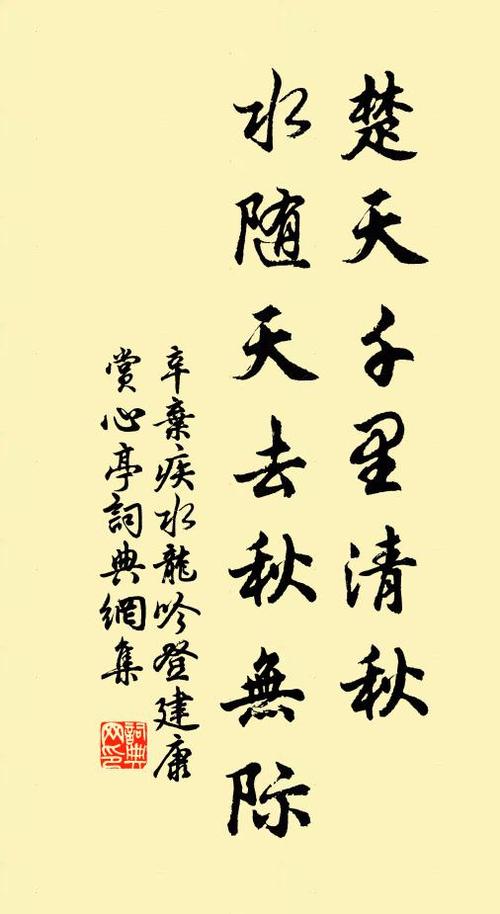 楚天千里清秋
水随天去秋無际
辛棄疾水龍吟登建康
賞心亭詞典網集
詞典
网印